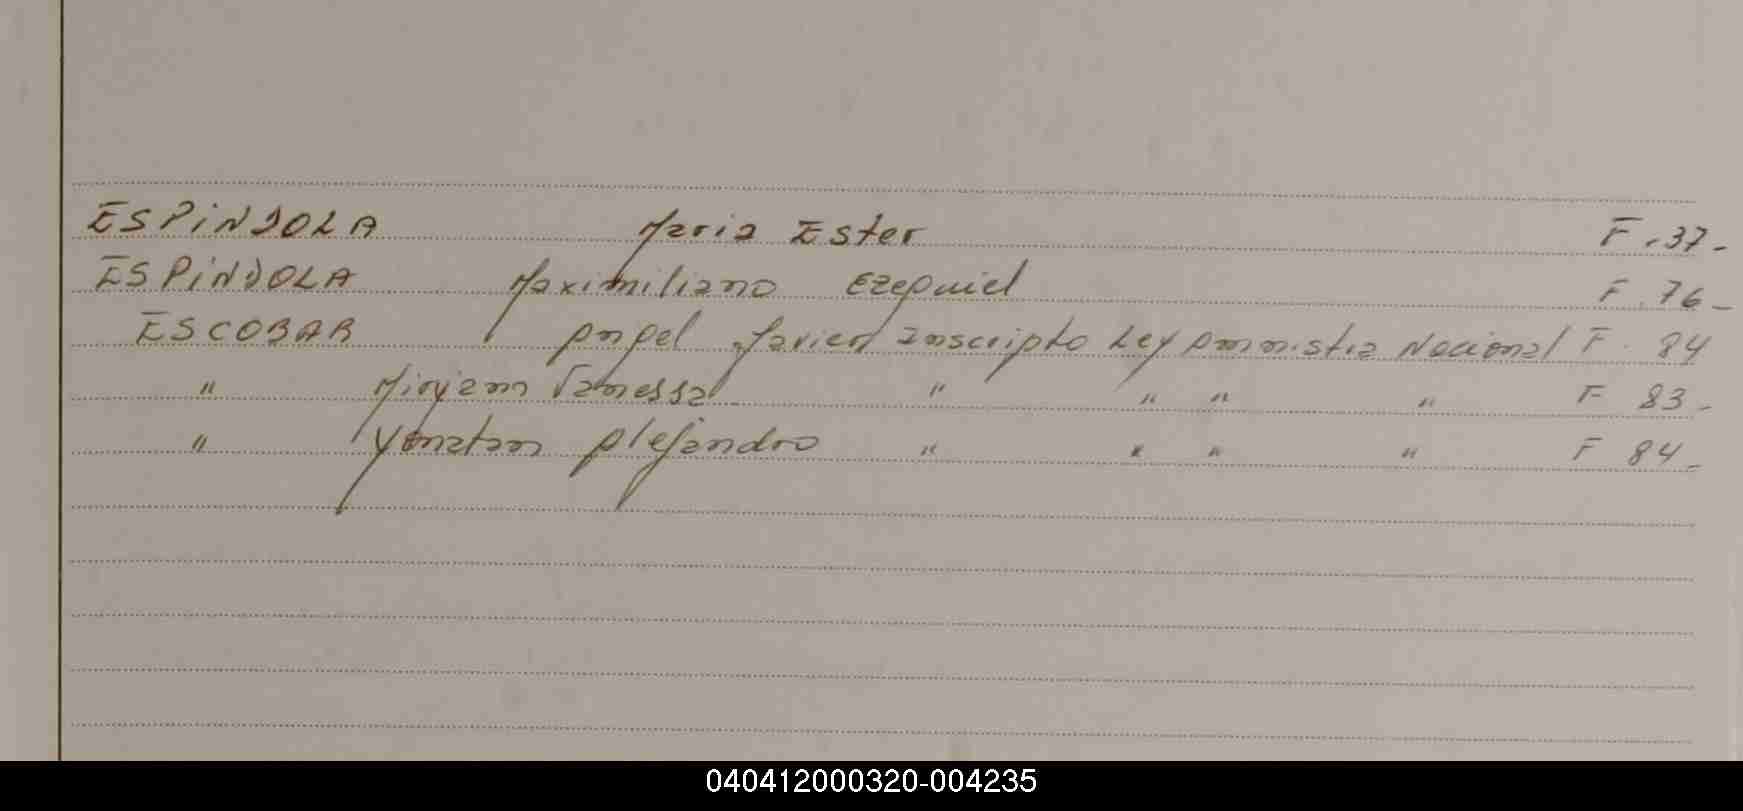 ESPiNDOLA Maria Ester F. 37-
ESPiNDOLA Maximiliano Ezequiel F. 76-
ESCOBAR Angel Javier Inscripto Ley Amnistia Nacional F. 84
" Miryam Vanessa " " " " F 83-
" Yonatan Alejandro " " " " F 84-
040412000320-004235